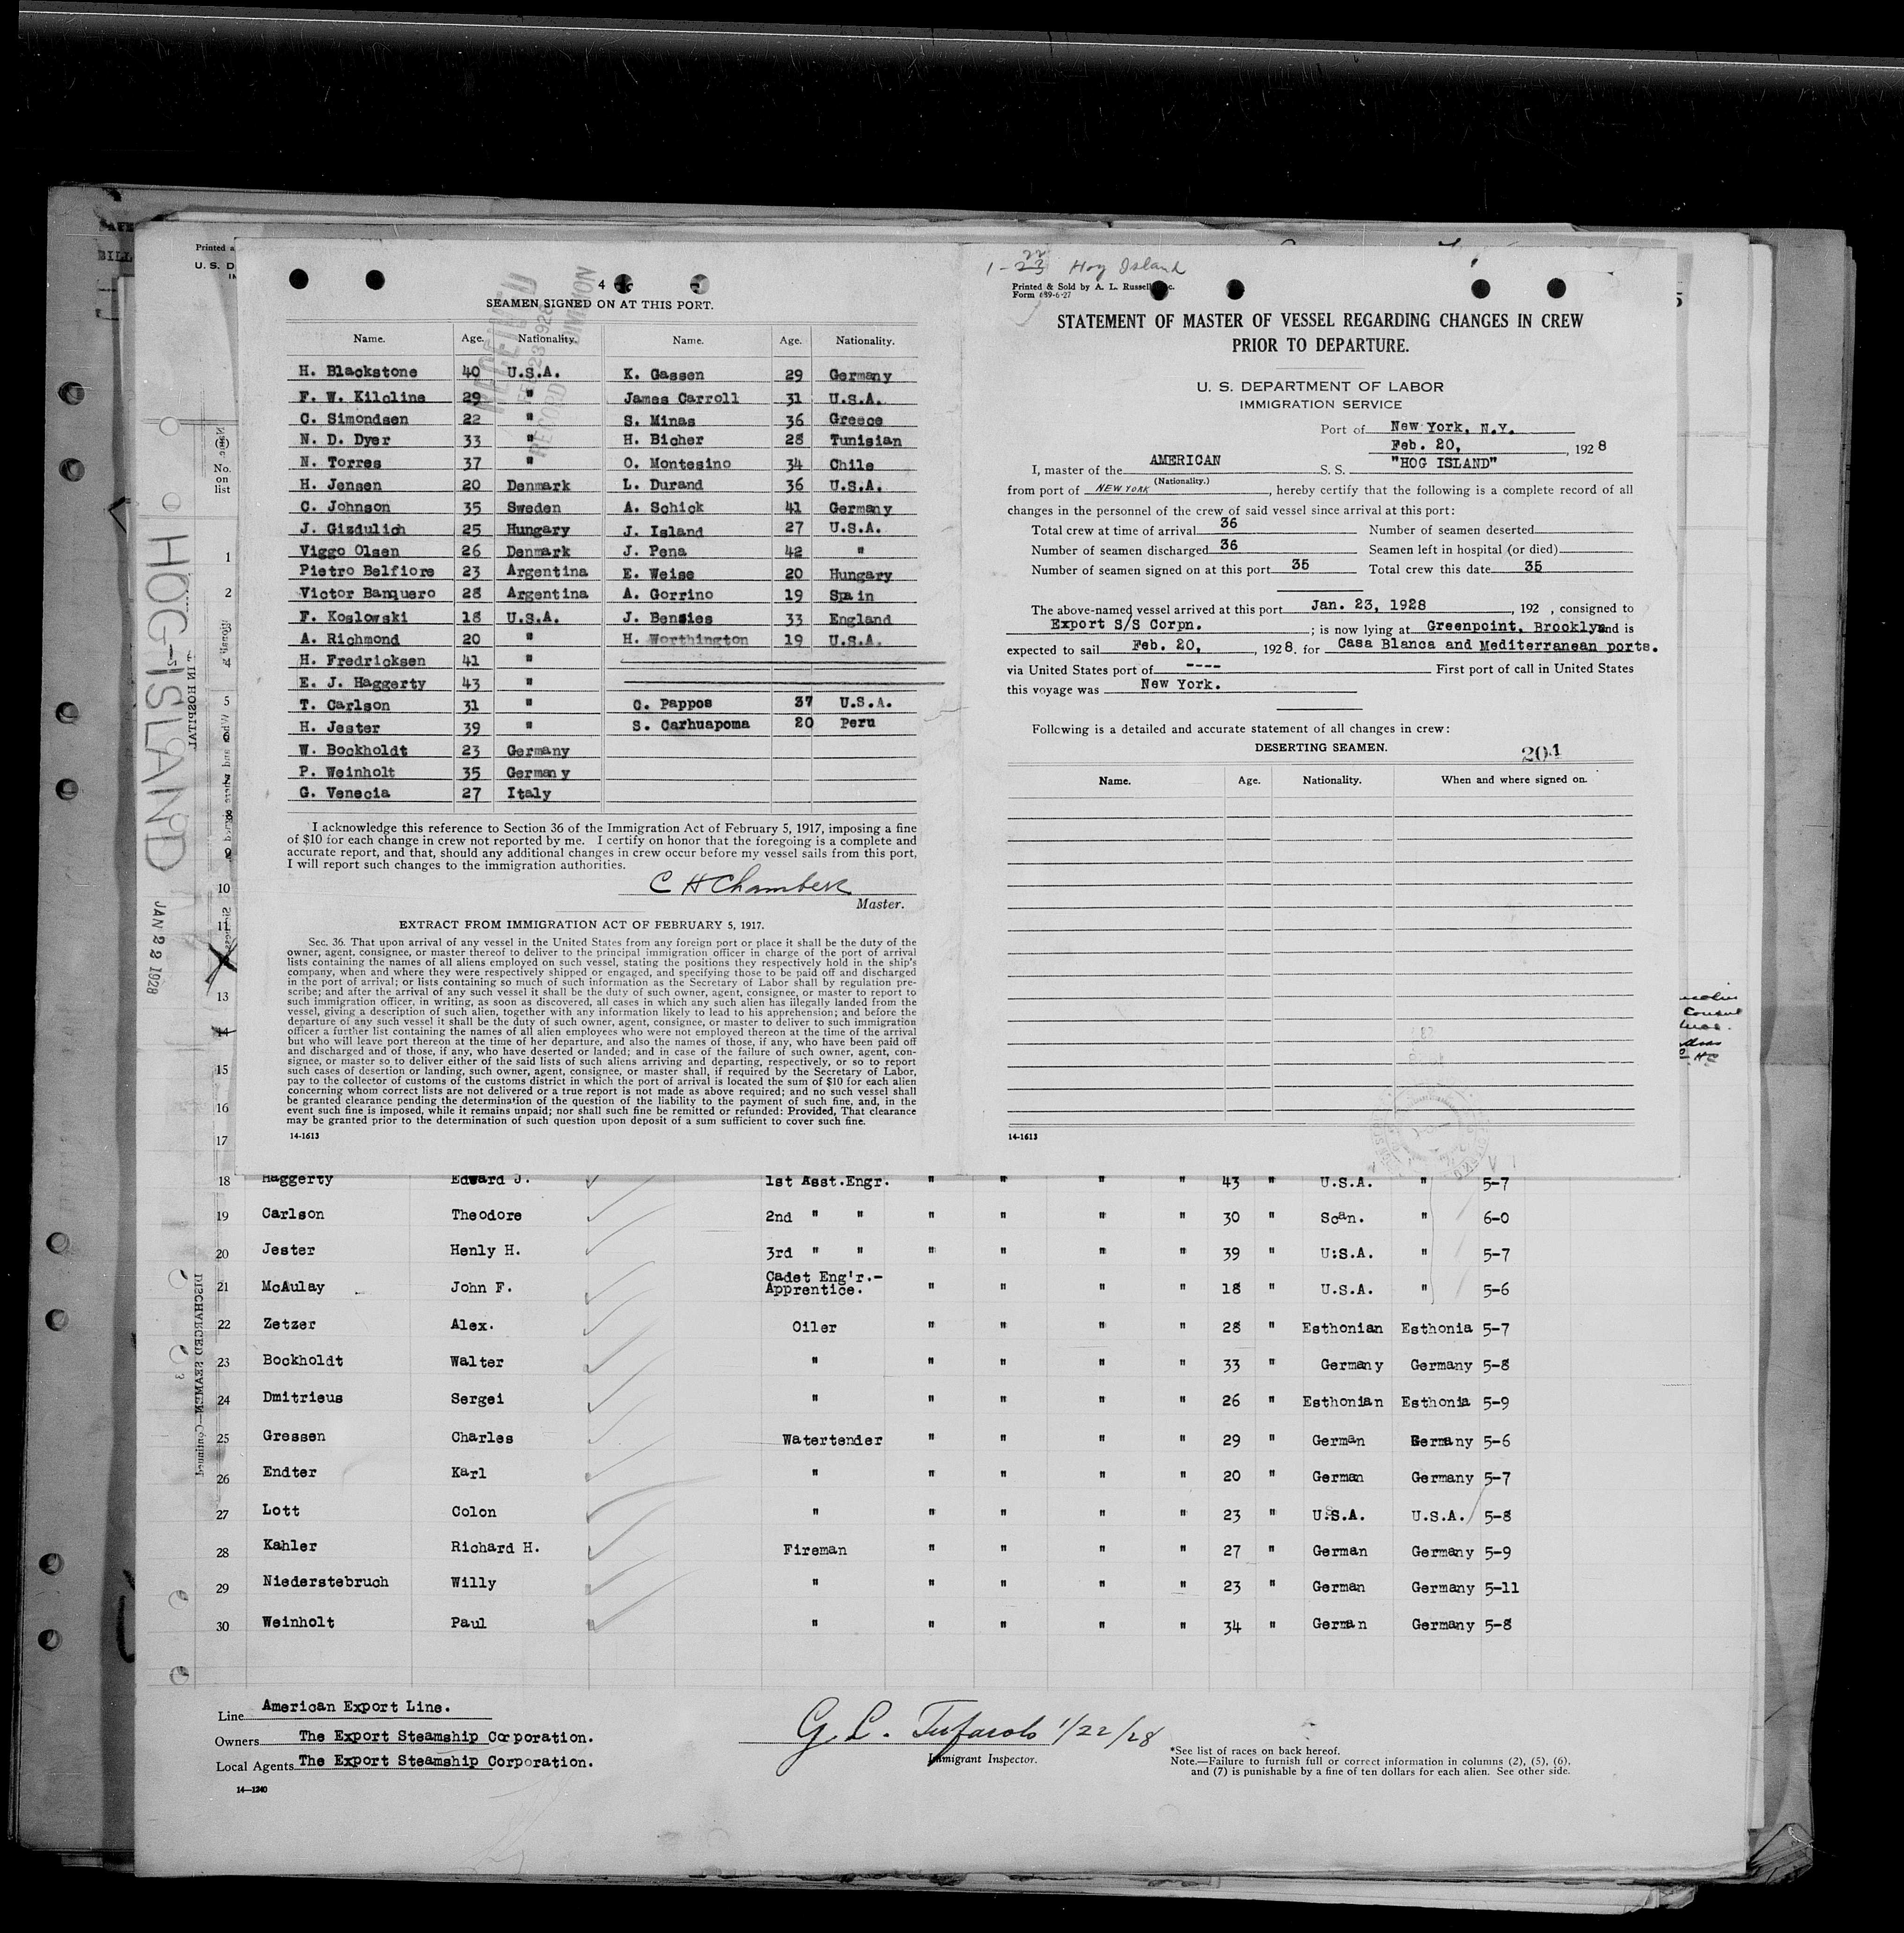 SEAMEN SIGNED ON AT THIS PORT.
Name. Age. Nationality. Name. Age. Nationality.
H. Blackstone 40 U.S.A. K. Gassen 29 Germany
F. W. Kilcline 29 " James Carroll 31 U.S.A.
C. Simondsen 22 " S. Minas 36 Greece
N. D. Dyer 33 " H. Bicher 28 Tunisian
N. Torres 37 " O. Montesino 34 Chile
H. Jensen 20 Denmark L. Durand 36 U.S.A.
C. Johnson 35 Sweden A. Schick 41 Germany
J. Gizdulich 25 Hungary J. Island 27 U.S.A.
Viggo Olsen 26 Denmark J. Pena 42 "
Pietro Belfiore 23 Argentina E. Weise 20 Hungary
Victor Banquero 28 Argentina A. Gorrino 19 Spain
F. Koslowski 18 U.S.A. J. Bensies 33 England
A. Richmond 20 " H. Worthington 19 U.S.A.
H. Fredricksen 41 "
E. J. Haggerty 43 "
T. Carlson 31 " C. Pappos 37 U.S.A.
H. Jester 39 " S. Carhuapoma 20 Peru
W. Bockholdt 23 Germany
P. Weinholt 35 Germany
G. Venecia 27 Italy
I acknowledge this reference to Section 36 of the Immigration Act of February 5, 1917, imposing a fine
of $10 for each change in crew not reported by me. I certify on honor that the foregoing is a complete and
accurate report, and that, should any additional changes in crew occur before my vessel sails from this port,
I will report such changes to the immigration authorities.
C H Chambers
Master.
EXTRACT FROM IMMIGRATION ACT OF FEBRUARY 5, 1917.
Sec. 36. That upon arrival of any vessel in the United States from any foreign port or place it shall be the duty of the
owner, agent, consignee, or master thereof to deliver to the principal immigration officer in charge of the port of arrival
lists containing the names of all aliens employed on such vessel, stating the positions they respectively hold in the ship's
company, when and where they were respectively shipped or engaged, and specifying those to be paid off and discharged
in the port of arrival; or lists containing so much of such information as the Secretary of Labor shall by regulation pre-
scribe; and after the arrival of any such vessel it shall be the duty of such owner, agent, consignee, or master to report to
such immigration officer, in writing, as soon as discovered, all cases in which any such alien has illegally landed from the
vessel, giving a description of such alien, together with any information likely to lead to his apprehension; and before the
departure of any such vessel it shall be the duty of such owner, agent, consignee, or master to deliver to such immigration
officer a further list containing the names of all alien employees who were not employed thereon at the time of the arrival
but who will leave port thereon at the time of her departure, and also the names of those, if any, who have been paid off
and discharged and of those, if any, who have deserted or landed; and in case of the failure of such owner, agent, con-
signee, or master so to deliver either of the said lists of such aliens arriving and departing, respectively, or so to report
such cases of desertion or landing, such owner, agent, consignee, or master shall, if required by the Secretary of Labor,
pay to the collector of customs of the customs district in which the port of arrival is located the sum of $10 for each alien
concerning whom correct lists are not delivered or a true report is not made as above required; and no such vessel shall
be granted clearance pending the determination of the question of the liability to the payment of such fine, and, in the
event such fine is imposed, while it remains unpaid; nor shall such fine be remitted or refunded: Provided, That clearance
may be granted prior to the determination of such question upon deposit of a sum sufficient to cover such fine.
14-1613
Hog Island
Printed & Sold by A. L. Russell
STATEMENT OF MASTER OF VESSEL REGARDING CHANGES IN CREW
PRIOR TO DEPARTURE.
U. S. DEPARTMENT OF LABOR
IMMIGRATION SERVICE
Port of New York, N.Y.
Feb. 20, , 1928
I, master of the AMERICAN S. S. "HOG ISLAND"
(Nationality.)
from port of NEW YORK, hereby certify that the following is a complete record of all
changes in the personnel of the crew of said vessel since arrival at this port:
Total crew at time of arrival 36 Number of seamen deserted
Number of seamen discharged 36 Seamen left in hospital (or died)
Number of seamen signed on at this port 35 Total crew this date 35
The above-named vessel arrived at this port Jan. 23, 1928 , 192 , consigned to
Export S/S Corpn. ; is now lying at Greenpoint, Brooklyn and is
expected to sail Feb. 20, , 1928. for Casa Blanca and Mediterranean ports.
via United States port of ---- First port of call in United States
this voyage was New York.
Following is a detailed and accurate statement of all changes in crew:
DESERTING SEAMEN.
204
Name. Age. Nationality. When and where signed on.
14-1613
HOG ISLAND JAN 22 1928
No. on list
18 Haggerty Edward J. 1st Asst.Engr. " " " " 43 " U.S.A. " 5-7
19 Carlson Theodore 2nd " " " " " " 30 " Scan. " 6-0
20 Jester Henly H. 3rd " " " " " " 39 " U.S.A. " 5-7
21 McAulay John F. Cadet Eng'r.- Apprentice. " " " " 18 " U.S.A. " 5-6
22 Zetzer Alex. Oiler " " " " 28 " Esthonian Esthonia 5-7
23 Bockholdt Walter " " " " " 33 " Germany Germany 5-8
24 Dmitrieus Sergei " " " " " 26 " Esthonian Esthonia 5-9
25 Gressen Charles Watertender " " " " 29 " German Germany 5-6
26 Endter Karl " " " " " 20 " German Germany 5-7
27 Lott Colon " " " " " 23 " U.S.A. U.S.A. 5-8
28 Kahler Richard H. Fireman " " " " 27 " German Germany 5-9
29 Niederstebruch Willy " " " " " 23 " German Germany 5-11
30 Weinholt Paul " " " " " 34 " German Germany 5-8
Line American Export Line.
Owners The Export Steamship Corporation.
Local Agents The Export Steamship Corporation.
14-1240
G. L. Tufarolo 1/22/28
Immigrant Inspector.
*See list of races on back hereof.
Note.—Failure to furnish full or correct information in columns (2), (5), (6),
and (7) is punishable by a fine of ten dollars for each alien. See other side.